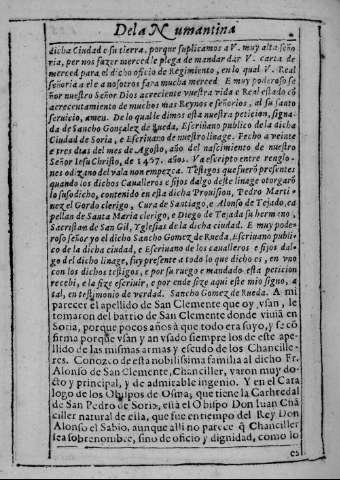 De la Numantina
dicha Ciudad e su tierra, porque suplicamos a V. muy alta seño
ria, per nos fazer merced le plega de mandar dar V. carta de
merced para el dicho oficio de Regimiento, en lo qual V. Real
señoria a ele a nosotros fara mucha merced. E muy poderoso se
ñor nuestro señor Dios acreciente vuestra vida e Real estado cõ
acrecentamiento de muchos mas Reynos e señorios, al su santo
seruicio, amen. De lo qual le dimos esta nuestra peticion, signa-
da de Sancho Gonçalez de Rueda, Escriuano publico de la dicha
Ciudad de Soria, e Escriuano de nuestro linage. Fecho a veinte
e tres dias del mes de Agosto, año del nascimiento de nuestro
Señor Iesu Christo, de 1457. años. Va escripto entre renglo-
nes o dizano del vala non empezca. Testigos que fuerõ presentes
quando los dichos Caualleros e fijos dalgo deste linage otorgarõ
lo susodicho, contenido en esta dicha Prouision, Pedro Marti
nez el Gordo clerigo, Cura de Santiago, e Alonso de Tejado, ca
pellan de Santa Maria clerigo, e Diego de Tejada su hermano,
Sacristan de San Gil, Yglesias de la dicha ciudad. E muy pode-
roso señor yo el dicho Sancho Gomez de Rueda, Escriuano publi-
co de la dicha ciudad, e Escriuano de los caualleros e fijos dal-
go del dicho linage, fuy presente a todo lo que dicho es, en vno
con los dichos testigos, e por su ruego e mandado esta peticion
recebi, e la fize escriuir, e por ende fize aqui este mio signo, a
tal, en testimonio de verdad. Sancho Gomez de Rueda. A mi
parecer el apellido de San Clemente que oy vsan, le
tomaron del barrio de San Clemente donde viuiã en
Soria, porque pocos años à que todo era suyo, y se cõ
firma porque vsan y an vsado siempre los de este ape-
llido de las mismas armas y escudo de los Chancille-
res. Conozco de esta nobilissima familia al dicho Fr.
Alonso de San Clemente, Chanciller, varon muy do-
cto y principal, y de admirable ingenio. Y en el Cata
logo de los Obispos de Osma, que tiene la Cathredal
de San Pedro de Soria, està el Obispo Don Iuan Chã
ciller natural de ella, que fue en tiempo del Rey Don
Alonso el Sabio, aunque alli no parece q̃ Chanciller
sea sobrenombre, sino de oficio y dignidad, como lo